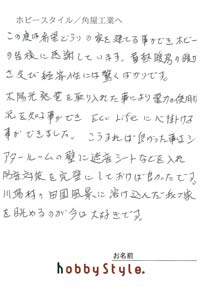 ホビースタイル/角屋工業へ
この度は希望どうりの家を建てる事ができホビー
の皆様に感謝しています。蓄熱暖房の暖か
さ及び経済性には驚くばかりです。
太陽光発電を取り入れた事により電力の使用状
況を知る事ができ Eco Life に心掛ける
事ができました。 こうすれば良かった事はシ
アタールームの壁に遮音シートなどを入れ
防音対策を完璧にしておけば良かったです。
川場村の田園風景に溶け込んだ我が家
を眺めるのが今は大好きです。
お名前
hobbyStyle.